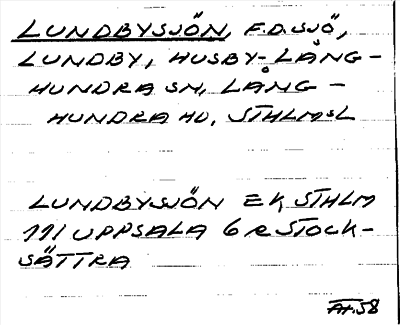 LUNDBYSJÖN, F.D. SJÖ,
LUNDBY, HUSBY-LÅNG-
HUNDRA SN, LÅNG-
HUNDRA HD, STHLMSL
LUNDBYSJÖN EK STHLM
111 UPPSALA 6 R STOCK-
SÄTTRA